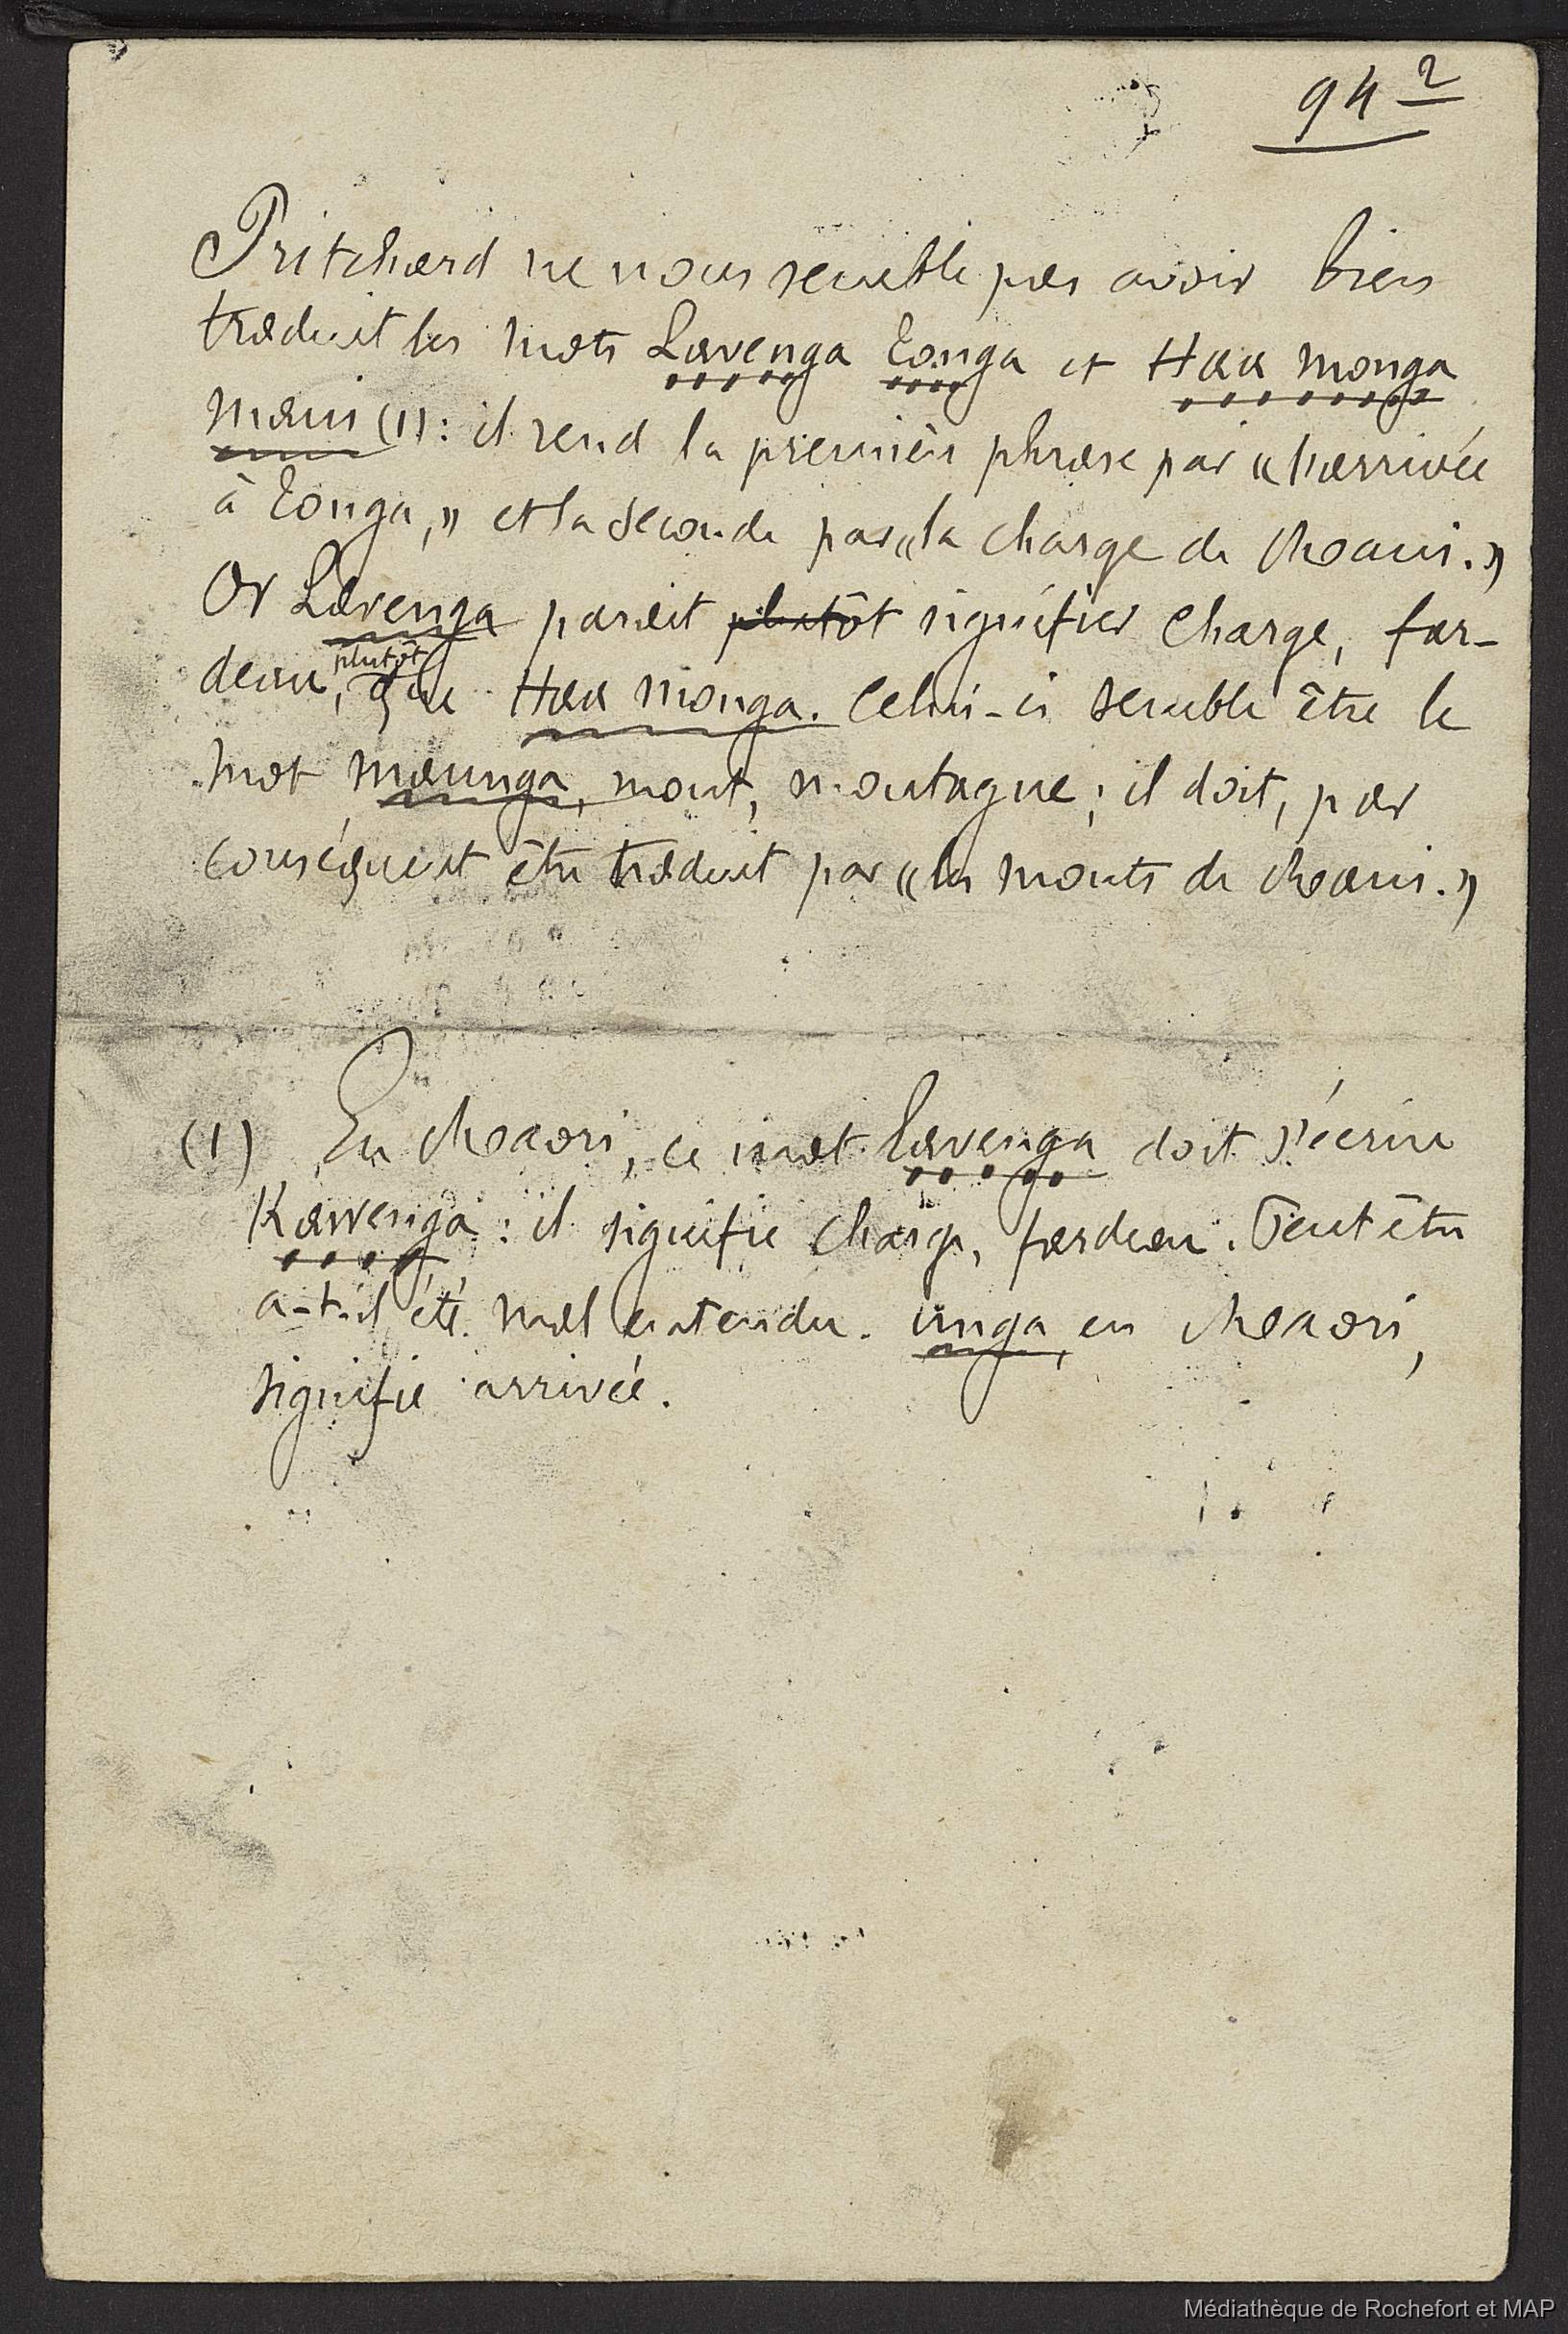 94 2
Pritchard ne nous semble pas avoir bien
traduit les mots Lavenga Tonga et Haa monga
maui (1) : il rend la première phrase par « l'arrivée
à Tonga, » et la seconde par « la charge de Maui. »
Or Lavenga parait plutôt signifier charge, far-
deau, plutôt que Haa monga. Celui-ci semble être le
mot maunga, mont, montagne ; il doit, par
conséquent être traduit par « les monts de Maui. »
(1) En Maori, ce mot lavenga doit s'écrire
Kawenga : il signifie charge, fardeau. Peut être
a-t-il été mal entendu. unga, en Maori,
signifie arrivée.
Médiathèque de Rochefort et MAP